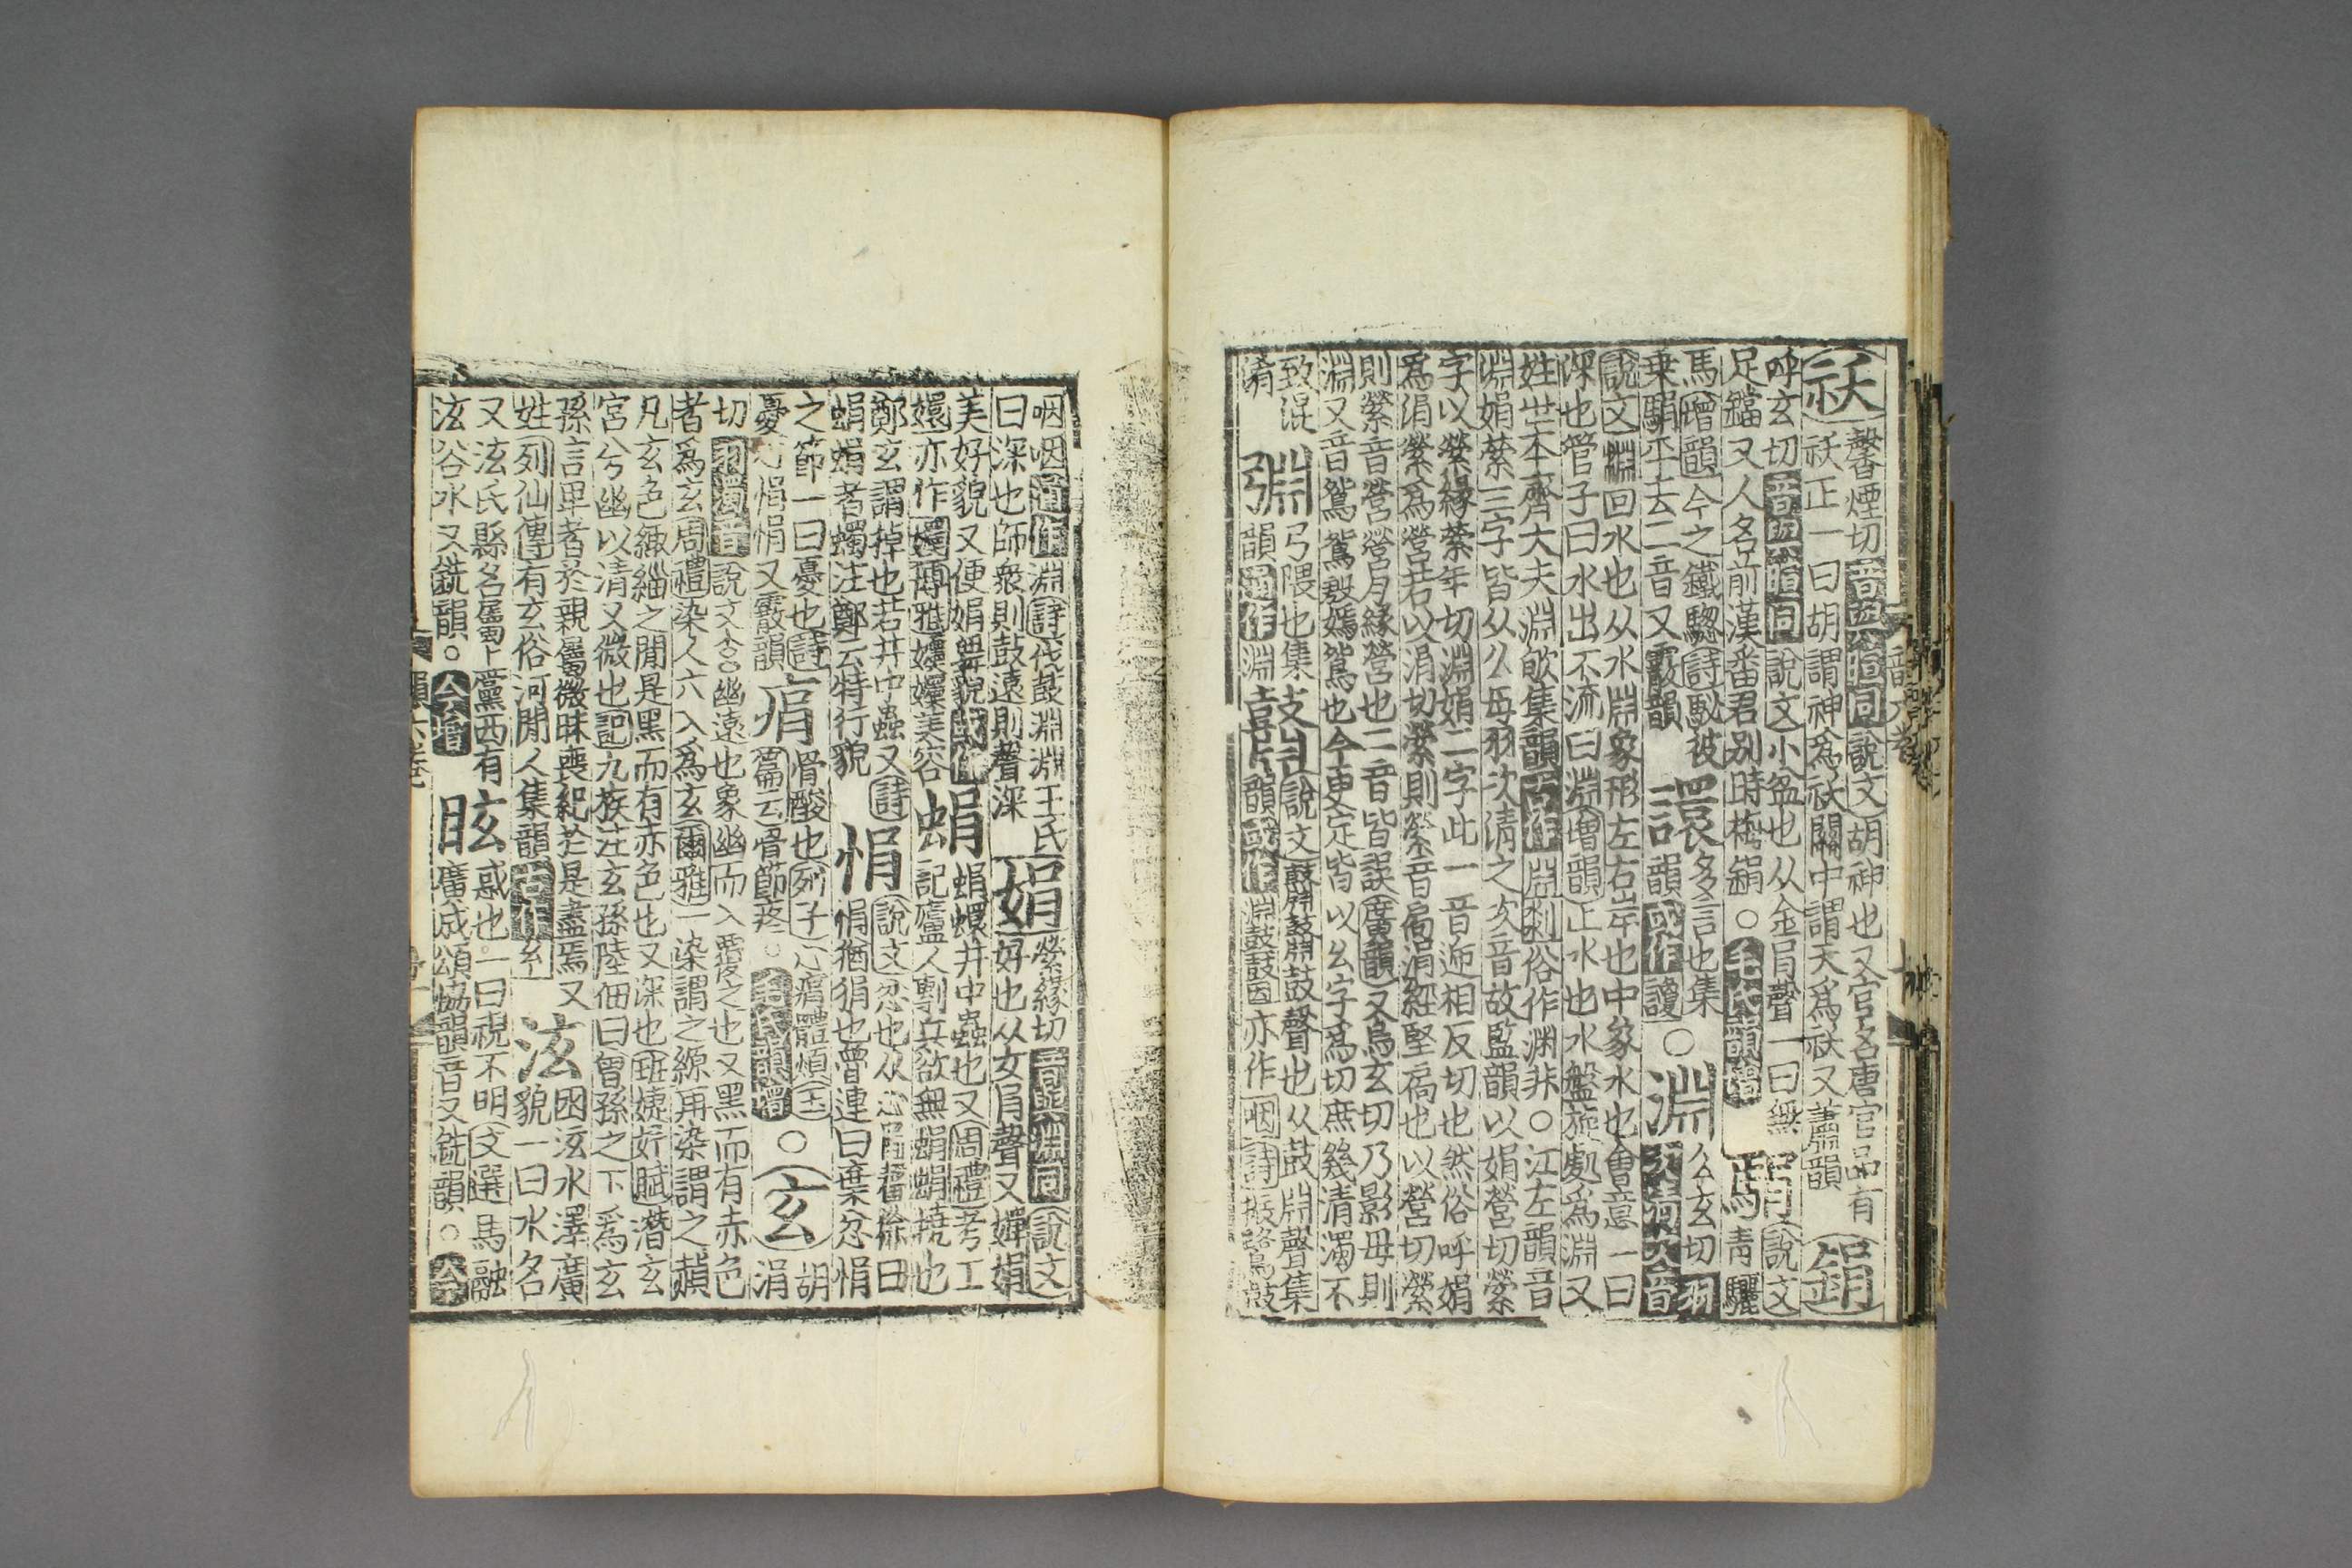 祅馨煙切音與暄同說文胡神也又官名唐官品有
祅正一曰胡謂神為祅關中謂天為祅又蕭韻
鋗
呼玄切音與暄同說文小盆也从金肙聲一曰無
足鐺又人名前漢番君别時梅鋗○毛氏韻增
駽說文青驪
馬增韻今之鐵驄詩駜彼
乗駽平去二音又霰韻
譞多言也集
韻或作
○淵
幺玄切羽次清次音
說文淵回水也从水淵象形左右岸也中象水也會意一曰
深也管子曰水出不流曰淵增韻止水也水盤旋處為淵又
姓世本齊大夫淵㰸集韻古作
俗作渊非○江左韻音
淵娟縈三字皆从幺母羽次清之次音故監韻以娟營切縈
字以縈緣縈年切淵娟二字此一音迎相反切也然俗呼娟
為涓縈為營若以涓切縈則縈音扃涓經堅扃也以營切縈
則縈音營營月緣營也二音皆誤廣韻又烏玄切乃影母則
淵又音鴛鴛敷嫣鴛也今更定皆以幺字為切庶幾清濁不
致混
淆
弓隈也集
韻通作淵
說文鼓聲也从鼓淵聲集
韻或作亦作咽詩振鷺鼓
咽咽通作淵詩伐鼓淵淵王氏
曰深也師衆則鼓遠則聲深
娟縈緣切音與淵同說文
好也从女肙聲又嬋娟
美好貌又便娟舞貌
嬛亦作博雅美容
蜎蜎蠉井中蟲也又周禮考工
記廬人刺兵欲無蜎蜎撓也
鄭玄謂掉也若井中蟲又詩
蜎蜎者蠋注鄭云特行貌
悁說文忿也从心肙聲徐曰
悁猶狷也曾連曰棄忿悁
之節一曰憂也詩
憂心悁悁又霰韻
痟骨酸也列子心痟體煩
篇云骨節疼○毛氏韻增
○玄胡涓
切羽濁音說文玄幽遠也象幽而入覆之也又黑而有赤色
者為玄周禮染人六入為玄爾雅一染謂之縓再染謂之赬
凡玄色緅緇之間是黑而有赤色也又深也班婕妤賦潛玄
宮兮幽以清又微也記九族注玄孫陸佃曰曾孫之下為玄
孫言卑者於親屬微昧喪紀於是盡焉又
姓列仙傳有玄俗河間人集韻古作
泫泫水澤廣
貌一曰水名
又泫氏縣名屬上黨西有
泫谷水又銑韻○今增
眩惑也一曰視不明文選馬融
廣成頌恊韻音又銑韻○今